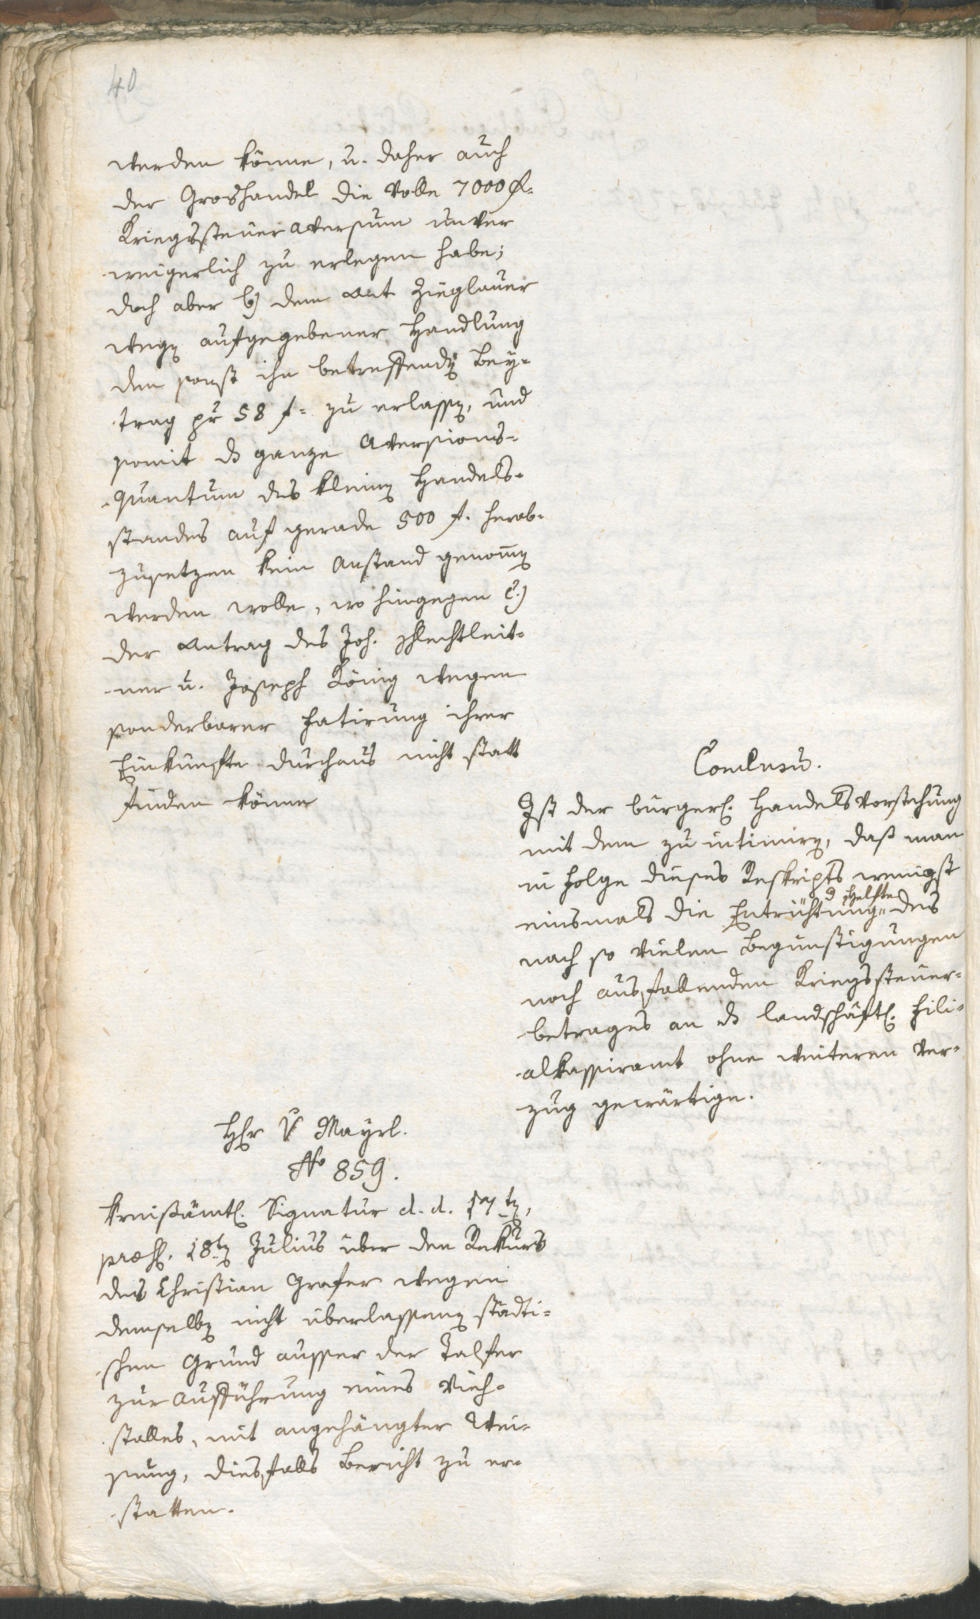 40
werden könne, u. daher auch
der Groshandel die volle 7000 f=
Kriegssteueraversum unver
weigerlich zu erlegen habe;
doch aber b) dem Ant Zieglauer
wegen aufgegebener Handlung
den sonst ihn betreffenden Bey=
trag pr 58 f= zu erlassen, und
somit das ganze Aversions=
quantum des kleinen Handels=
standes auf gerade 500 f. herab=
zusetzen kein Anstand genommen
werden wolle, wo hingegen c)
der Antrag des Joh. Schlechtleit=
ner u. Joseph König wegen
sonderbarer Fatirung ihrer
Einkünfte durchaus nicht statt
finden könne
Conclusu.
Ist der bürgerl. Handelsvorstehung
mit dem zu intimiren, daß man
in Folge dieses Reskripts wenigst
einsmals die Entrichtung der Helfte des
nach so vielen Begünstigungen
noch ausfallenden Kriegssteuer=
betrages an das landschäftl. Fili=
alkassieramt ohne weiteren Ver=
zug gewärtige.
Hhr v Mayrl.
No 859.
Kreisämtl. Signatur d. d. 17ten,
praes. 28ten Julius über den Rekurs
des Christian Grafer wegen
demselben nicht überlassenen städti=
schen Grund ausser der Talfer
zur Aufführung eines Vieh=
stalles, mit angehängter Wei=
sung, diesfalls Bericht zu er=
statten.